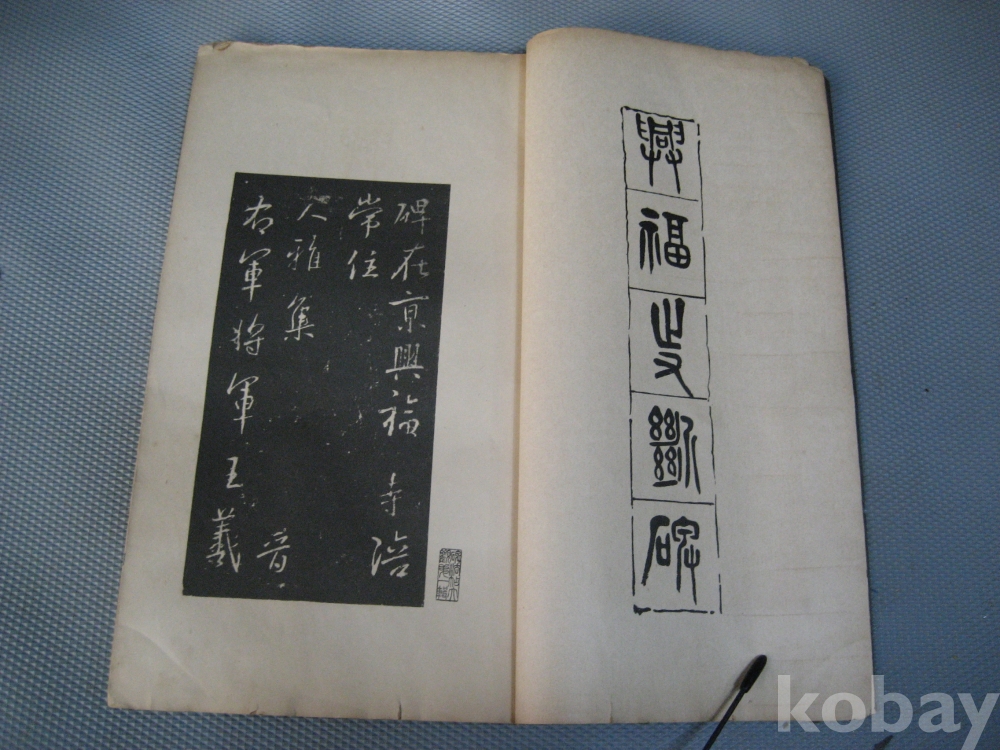 興福寺斷碑
碑在京興福寺陪
常住
大雅集晉
右軍將軍王羲
kobay